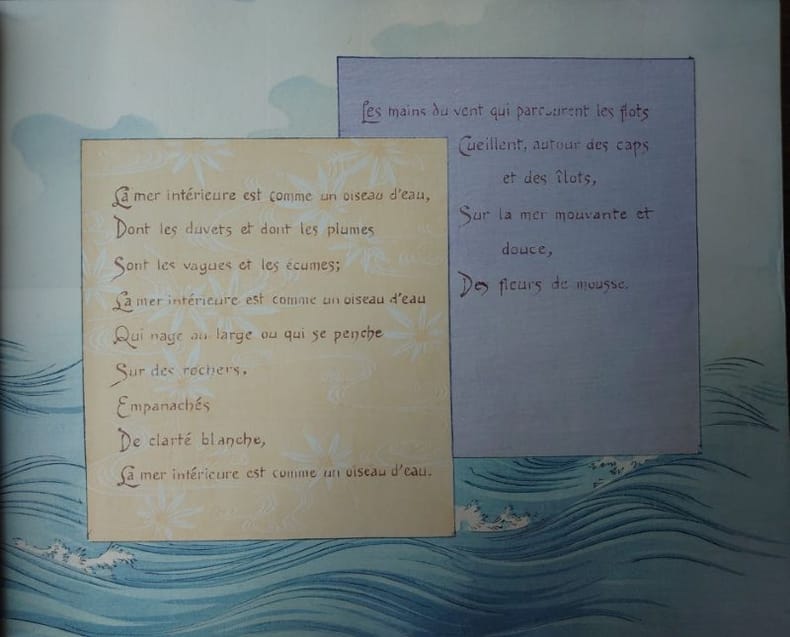 La mer intérieure est comme un oiseau d'eau,
Dont les duvets et dont les plumes
Sont les vagues et les écumes;
La mer intérieure est comme un oiseau d'eau
Qui nage au large ou qui se penche
Sur des rochers,
Empanachés
De clarté blanche,
La mer intérieure est comme un oiseau d'eau.
Les mains du vent qui parcourent les flots
Cueillent, autour des caps
et des îlots,
Sur la mer mouvante et
douce,
Des fleurs de mousse.